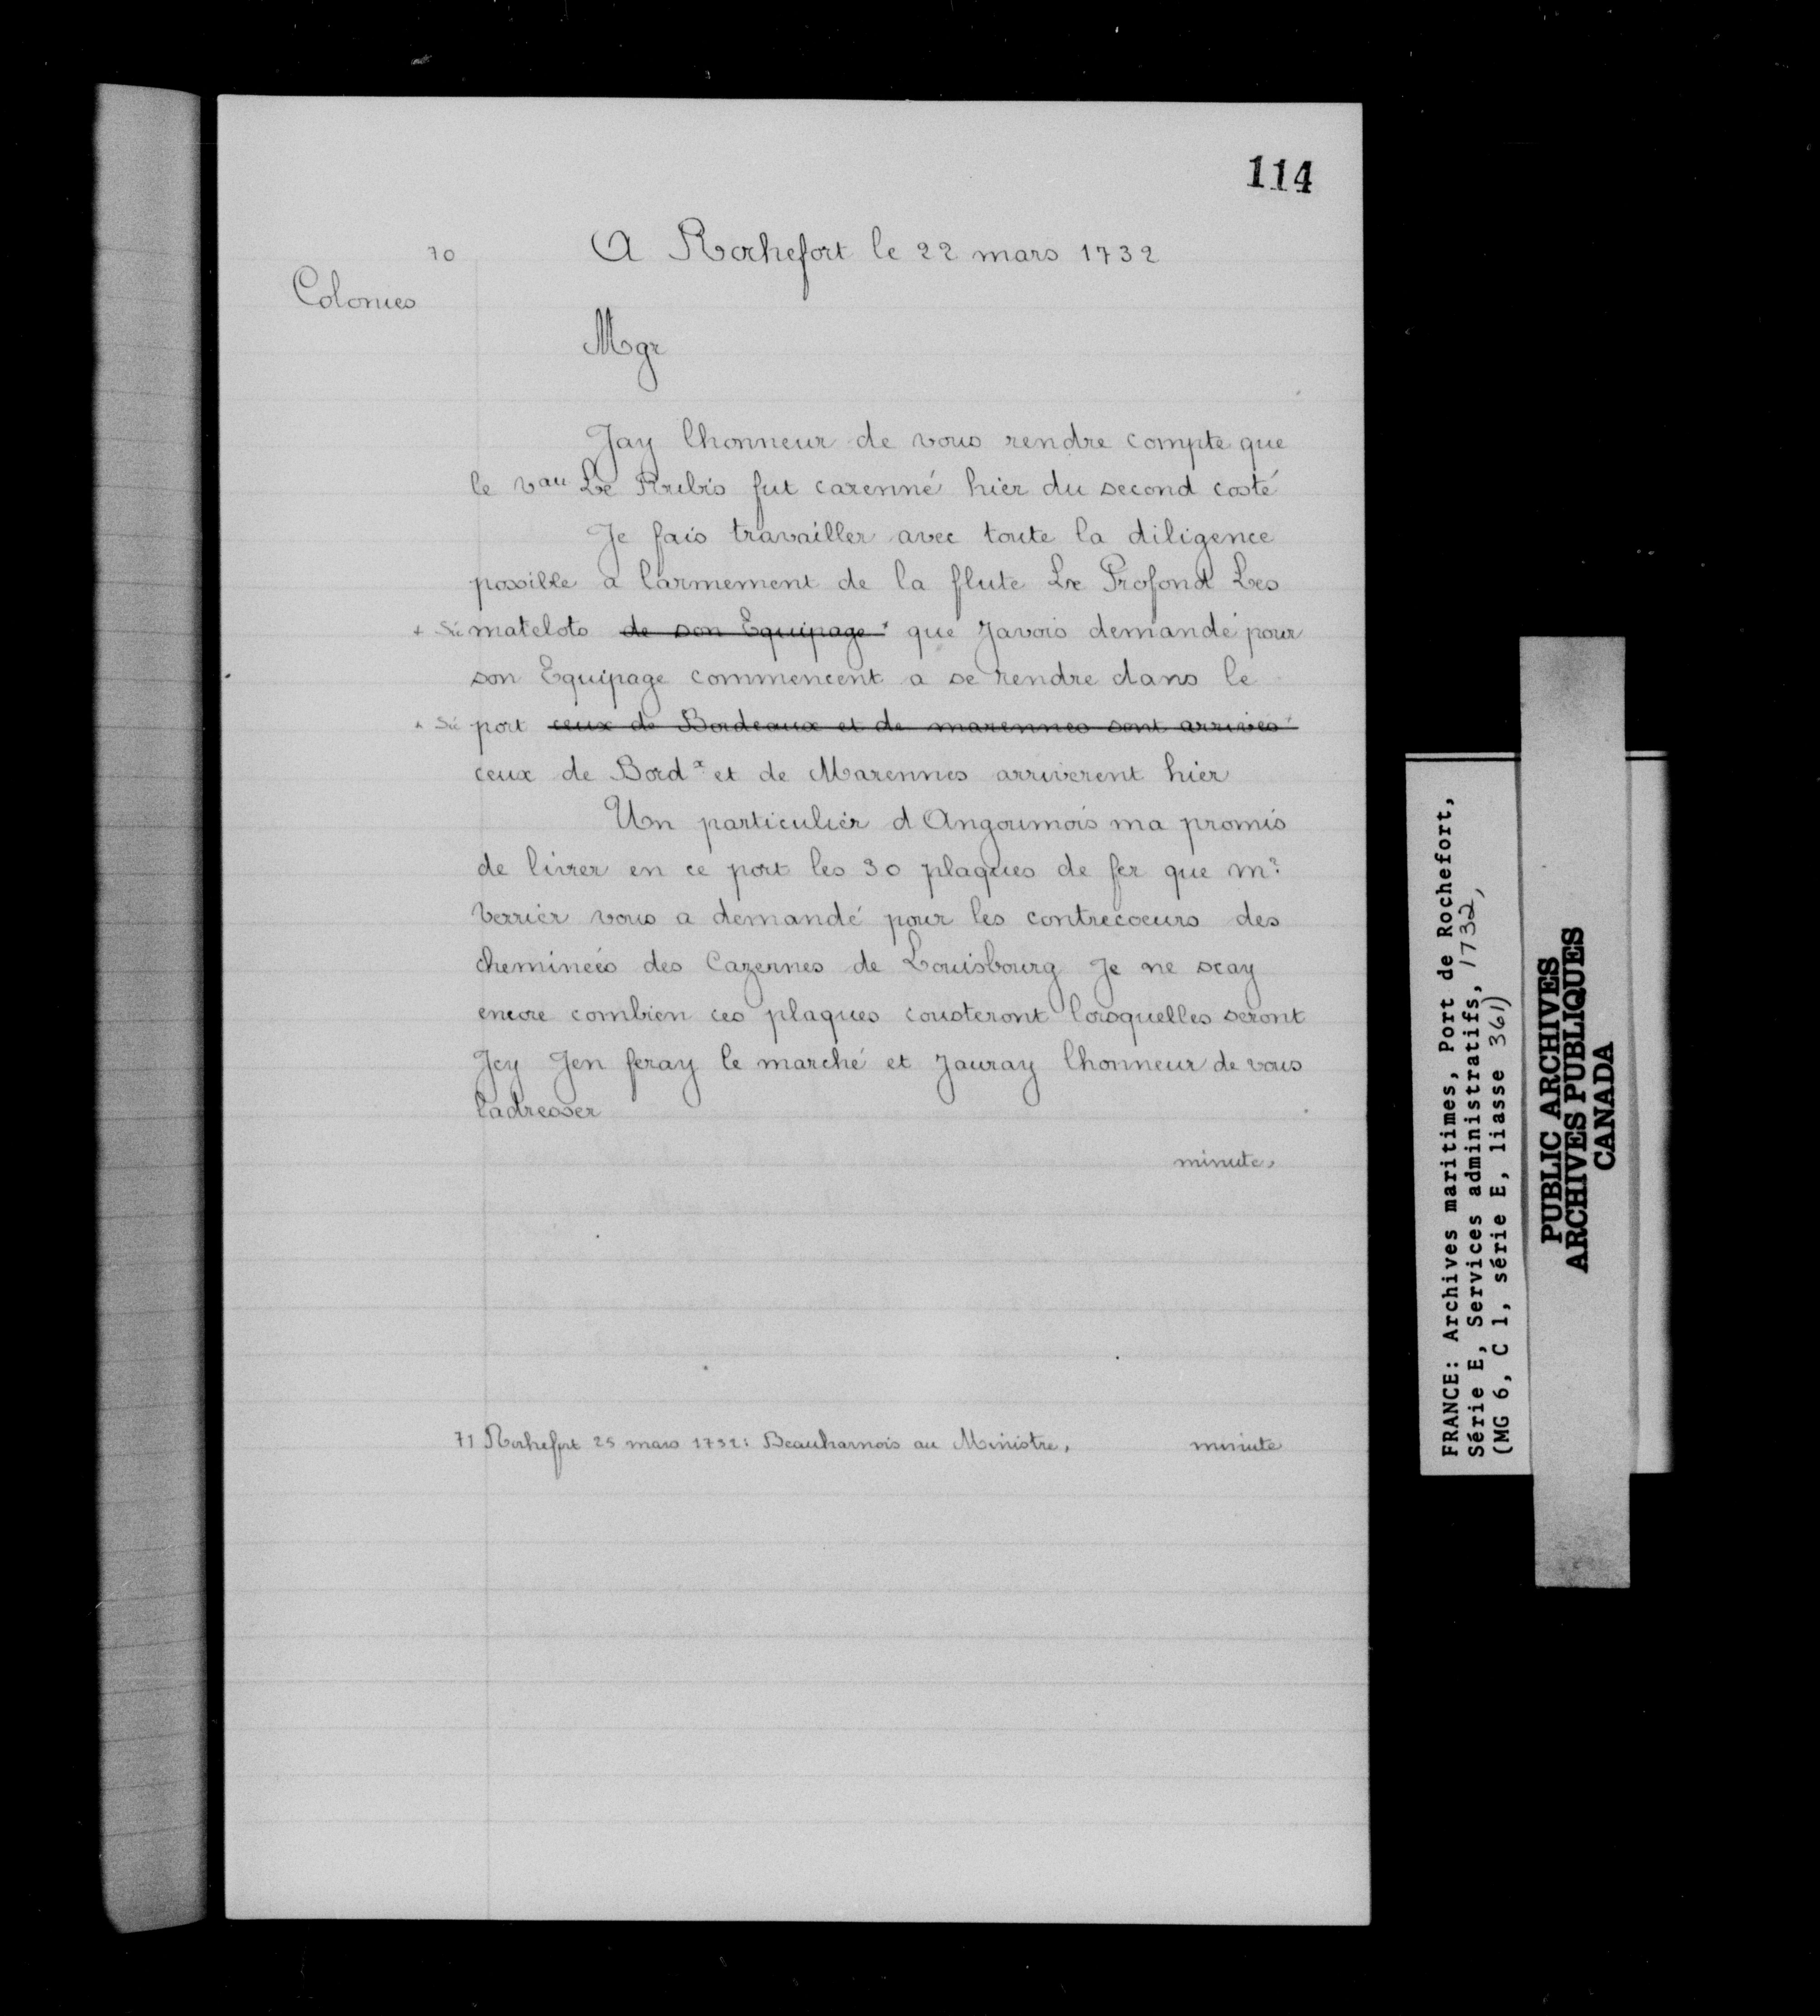 114
70
A Rochefort le 22 mars 1732
Colonies
Mgr
Jay lhonneur de vous rendre compte que
le vau Le Rubis fut carenné hier du second costé
Je fais travailler avec toute la diligence
possible a larmement de la flute Le Profond Les
+ Sic matelots de son Equipage+ que Javois demandé pour
son Equipage commencent a se rendre dans le
+ Sic port ceux de Bordeaux et de marennes sont arrivés+
ceux de Bordx et de Marennes arriverent hier
Un particulier d Angoumois ma promis
de livrer en ce port les 30 plaques de fer que mr
Verrier vous a demandé pour les contrecoeurs des
cheminées des Cazernes de Louisbourg Je ne scay
encore combien ces plaques cousteront lorsquelles seront
Jcy Jen feray le marché et Jauray lhonneur de vous
ladresser
minute,
71 Rochefort 25 mars 1732: Beauharnois au Ministre, minute
FRANCE: Archives maritimes, Port de Rochefort,
Série E, Services administratifs, 1732,
(MG 6, C 1, série E, liasse 361)
PUBLIC ARCHIVES
ARCHIVES PUBLIQUES
CANADA